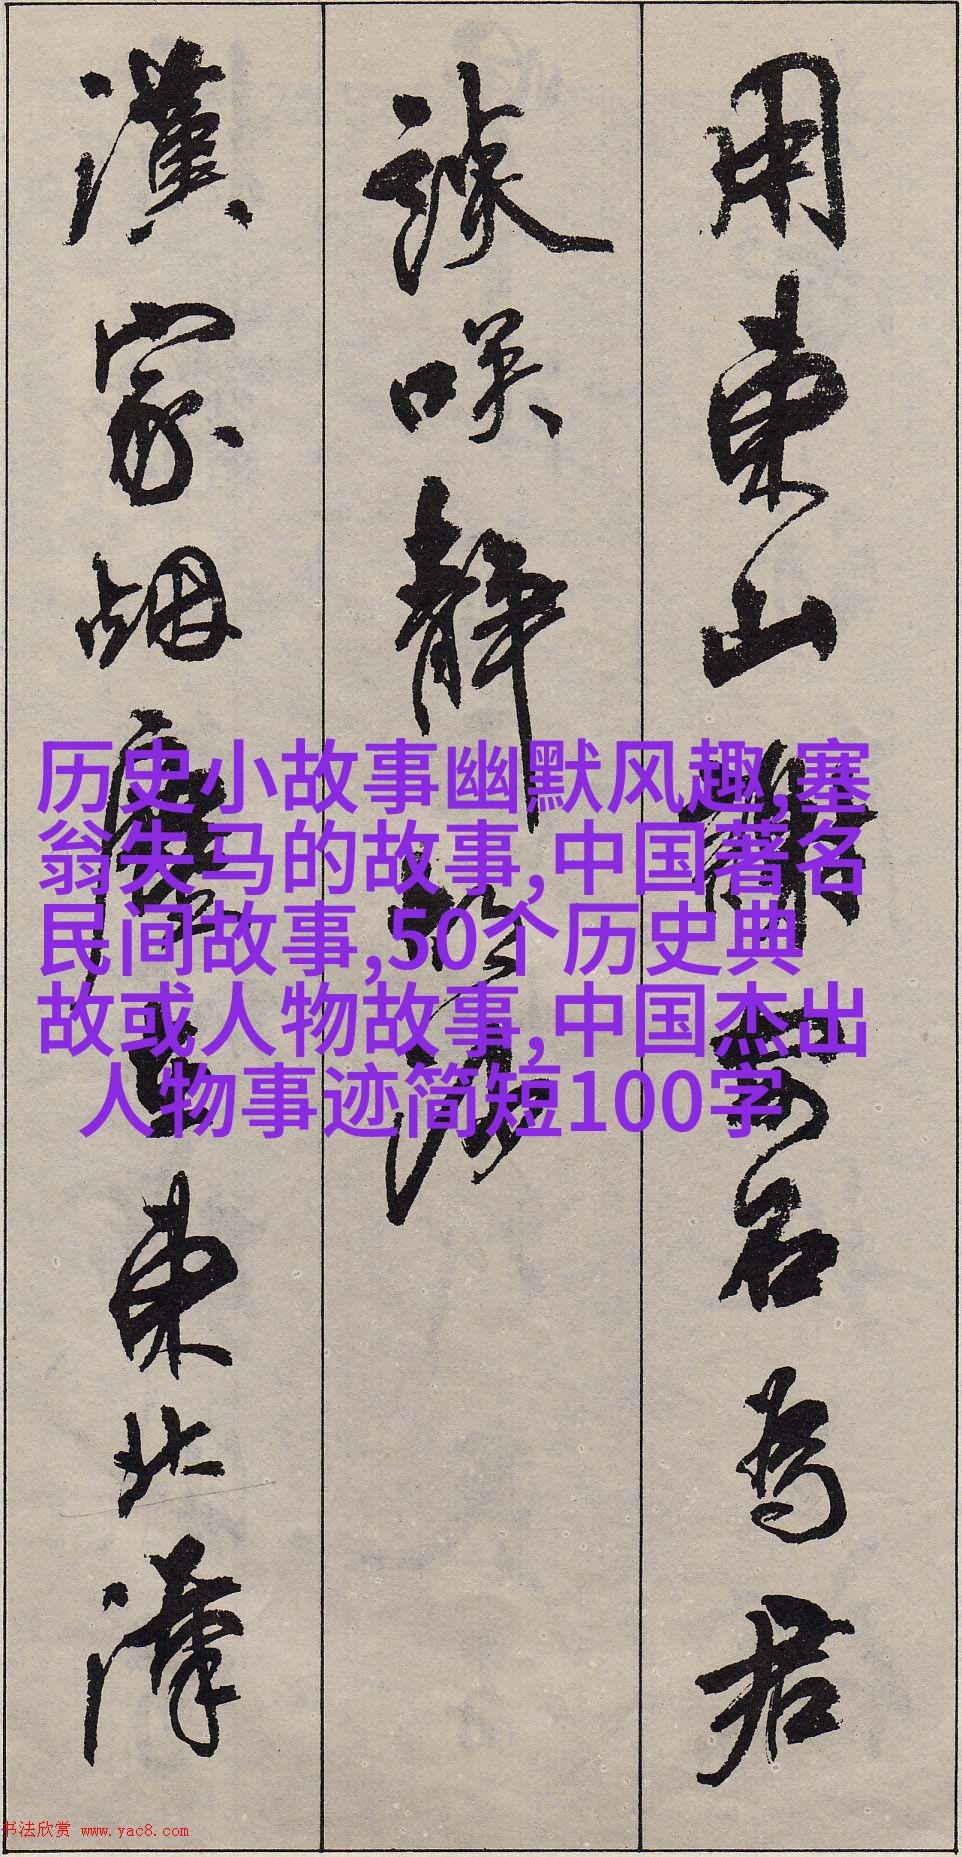 用東山謝安石為君
談咲靜胡沙
漢家烟塵在東北漢
历史小故事幽默风趣,塞
翁失马的故事,中国著名
民间故事,50个历史典
故或人物故事,中国杰出
人物事迹简短100字
书法欣赏 www.yac8.com